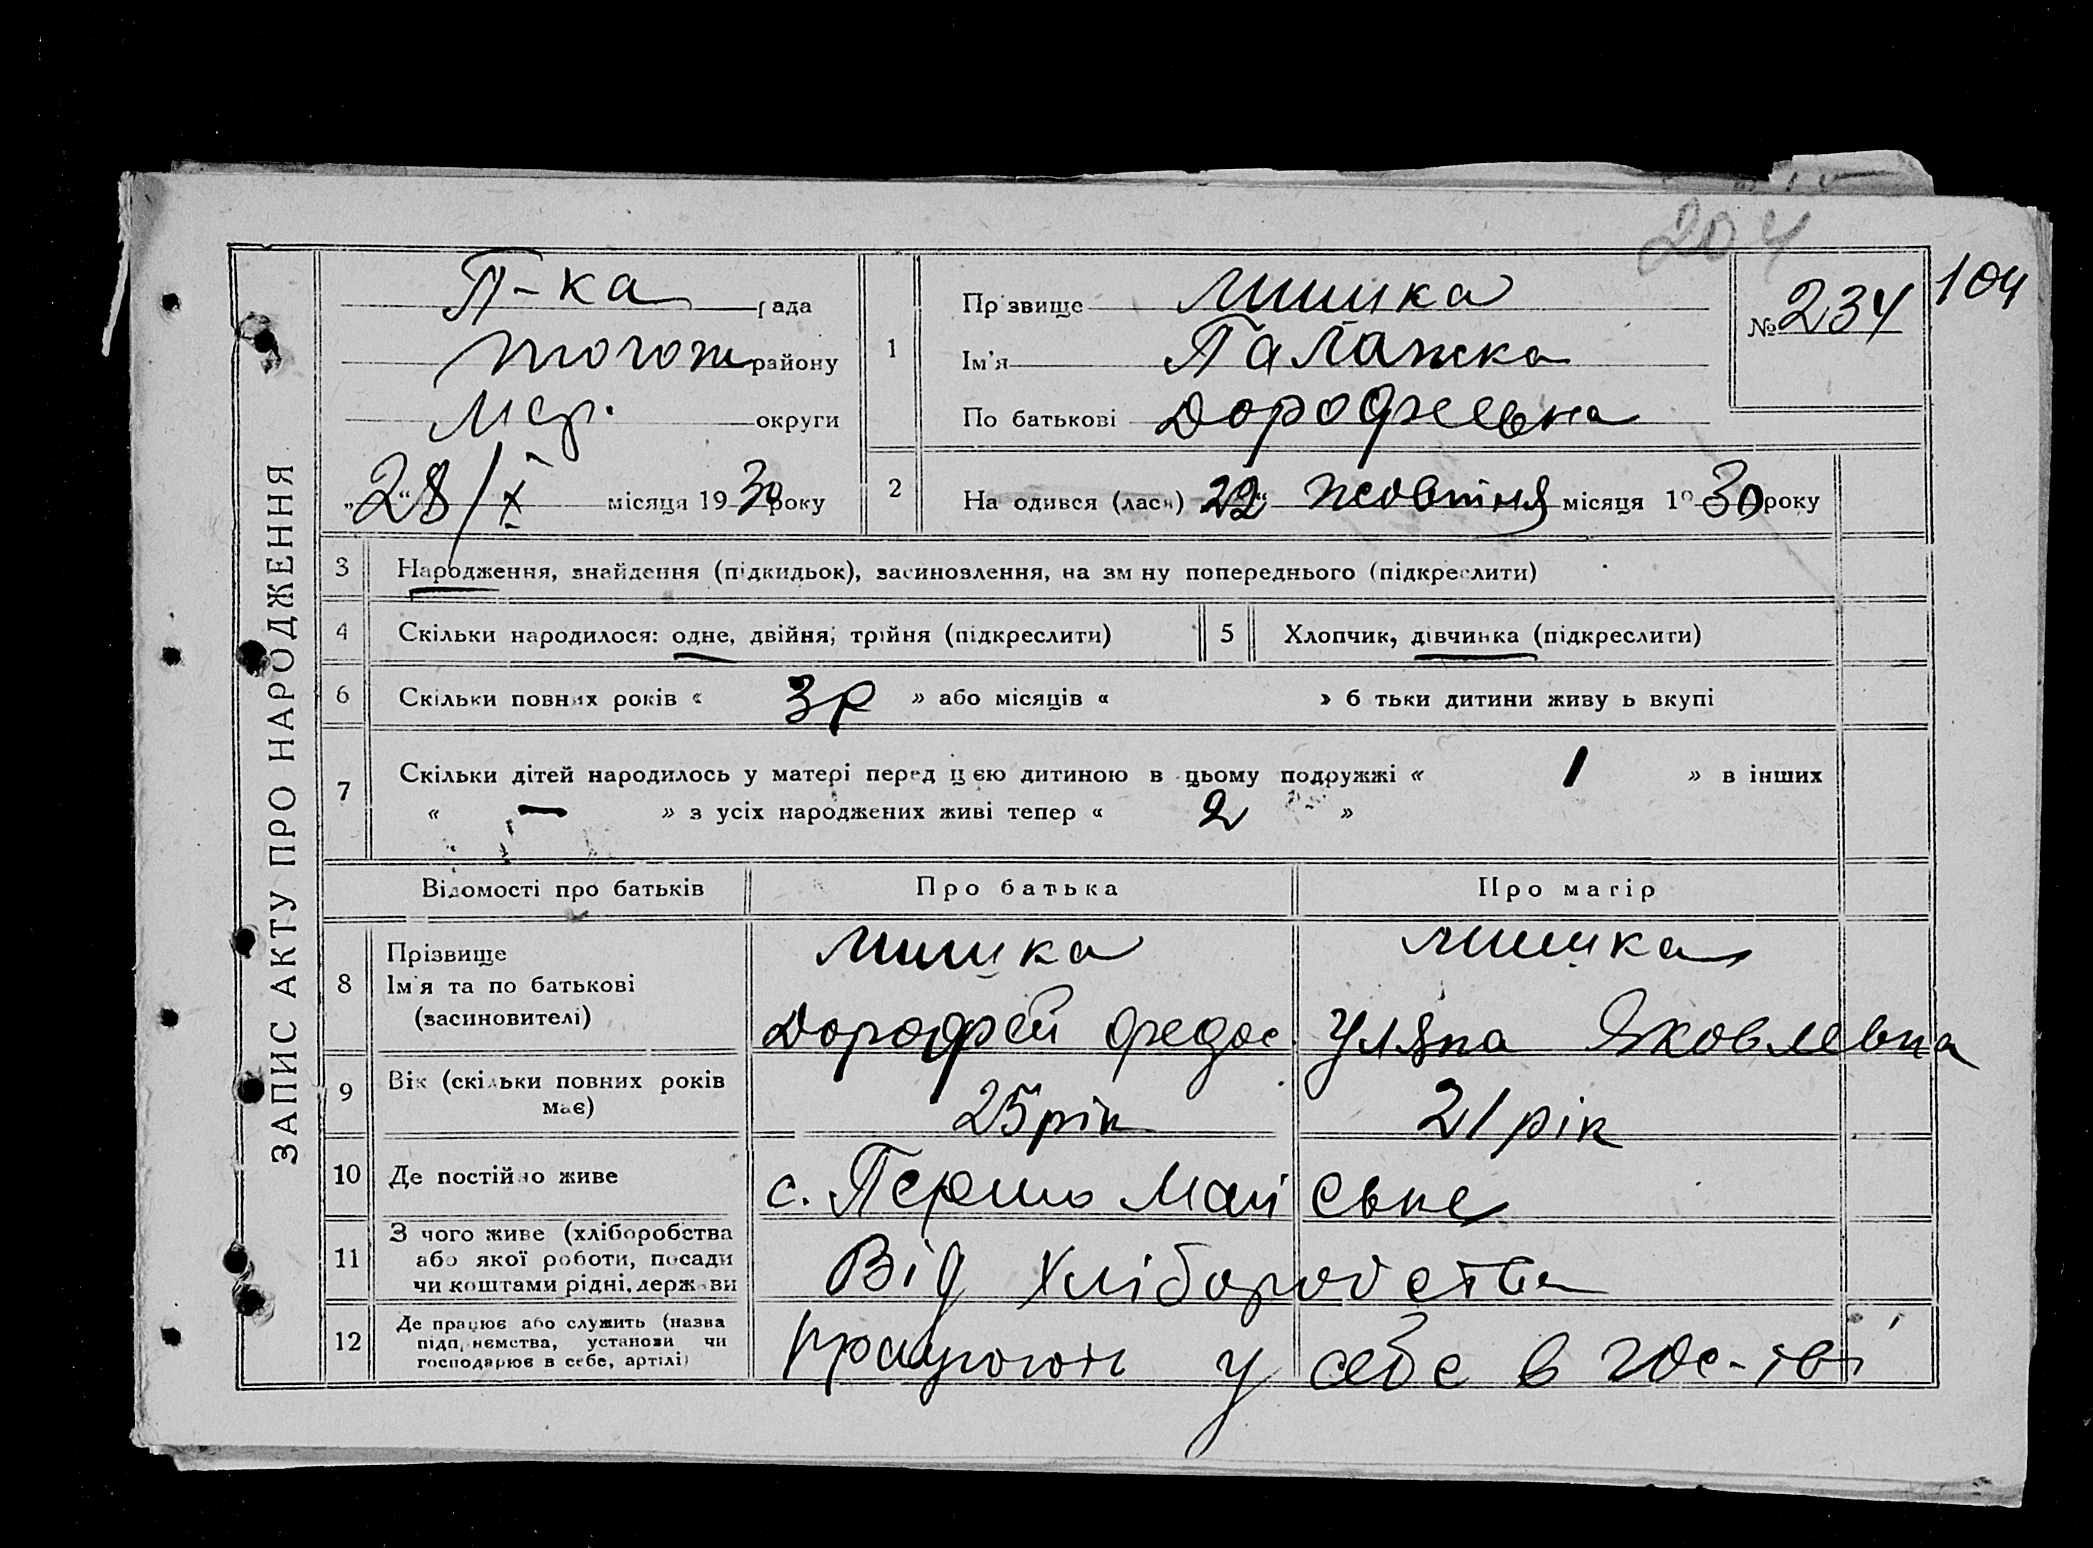 204
104
ЗАПИС АКТУ ПРО НАРОДЖЕННЯ
П-ка рада
району
округи
„28“/X місяця 1930 року
1
Прізвище Мишка
Ім'я Палажка
По батькові Дорофеевна
№ 234
2
Народився (лась) 22 жовтня місяця 1930 року
3 Народження, знайдення (підкидьок), засиновлення, на зміну попереднього (підкреслити)
4 Скільки народилося: одне, двійня, трійня (підкреслити)
5 Хлопчик, дівчинка (підкреслити)
6 Скільки повних років « 3 р » або місяців « » батьки дитини живуть вкупі
7 Скільки дітей народилось у матері перед цією дитиною в цьому подружжі « 1 » в інших
« — » з усіх народжених живі тепер « 2 »
Відомості про батьків Про батька Про матір
8 Прізвище Мишка Мишка
Ім'я та по батькові
(засиновителі) Дорофей Федос. Уляна Яковлевна
9 Вік (скільки повних років має) 25 рік 21 рік
10 Де постійно живе с. Першо Майське
11 З чого живе (хліборобства
або якої роботи, посади
чи коштами рідні, держави Від хліборобства
12 Де працює або служить (назва
підприємства, установи чи
господарює в себе, артілі) у себе в гос-тві